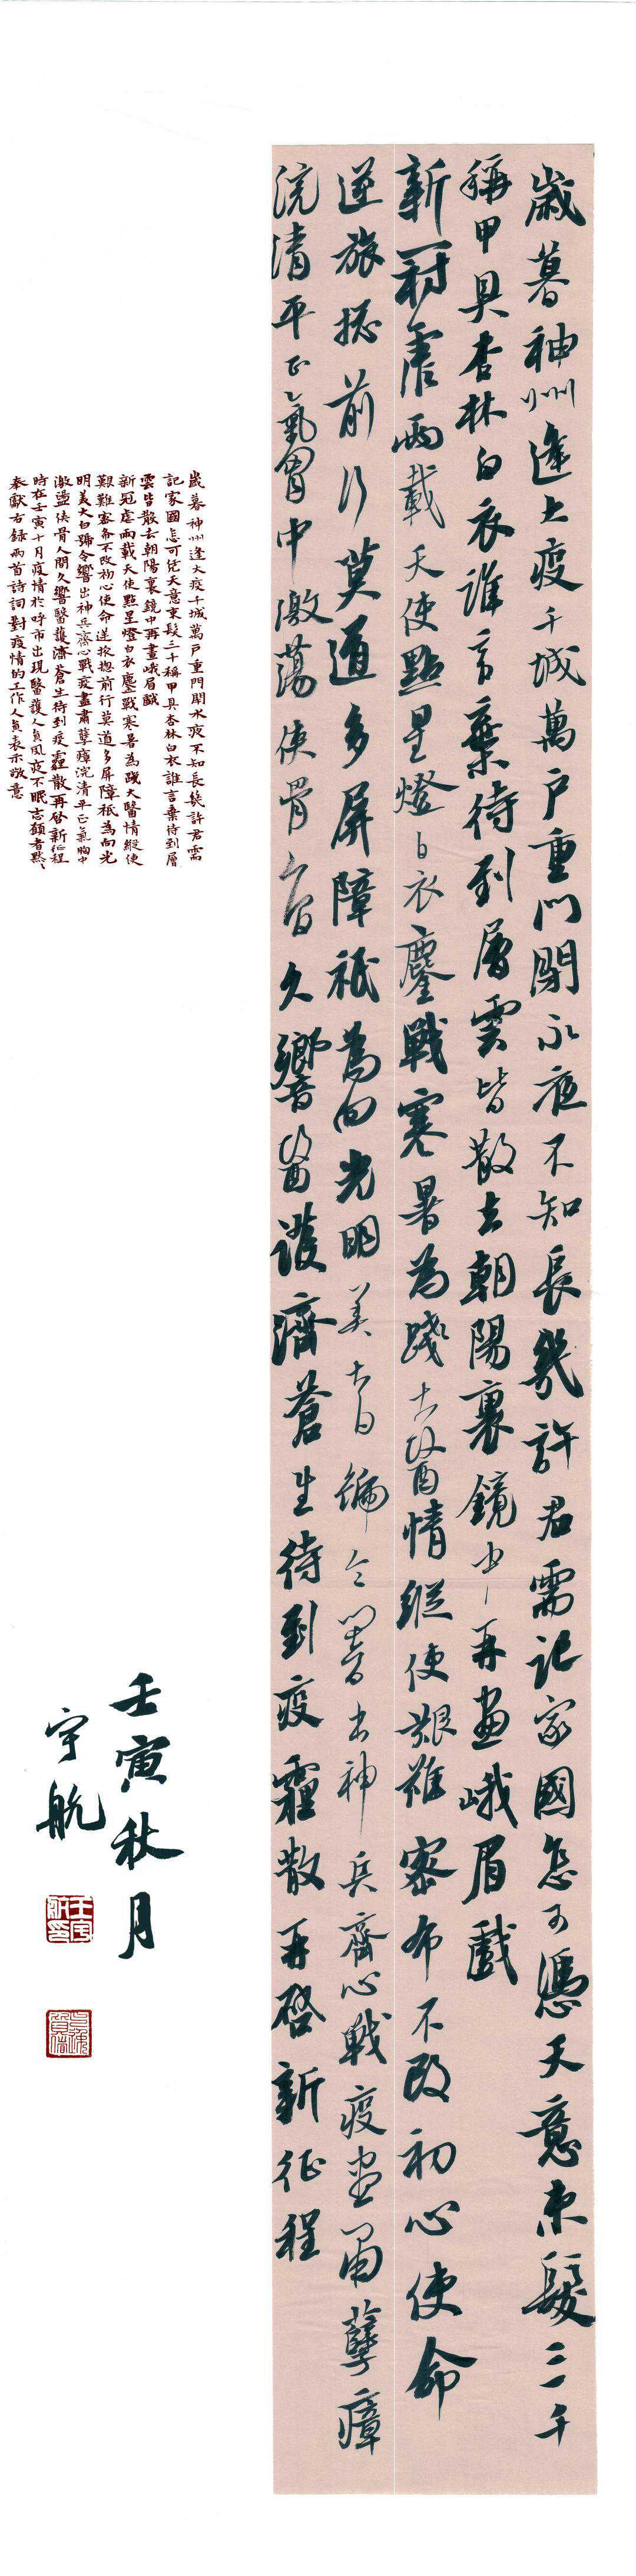 歲暮神州逢大疫千城萬戶重門閉永夜不知長幾許君需記家國怎可憑天意束髮三千
稱甲具杏林白衣誰言棄待到層雲皆散去朝陽裏鏡中再畫峨眉戲
新冠虐兩載天使點星燈白衣鏖戰寒暑為踐大醫情縱使艱難密布不改初心使命
逆旅摠前行莫道多屏障祇為向光明美大白號令響出神兵齊心戰疫盡肅孽瘴
浣清平正氣胷中激蕩俠骨人間久響醫護濟蒼生待到疫霾散再啓新征程
歲暮神州逢大疫千城萬戶重門閉永夜不知長幾許君需
記家國怎可憑天意束髮三千稱甲具杏林白衣誰言棄待到層
雲皆散去朝陽裏鏡中再畫峨眉戲
新冠虐兩載天使點星燈白衣鏖戰寒暑為踐大醫情縱使
艱難密布不改初心使命逆旅摠前行莫道多屏障祇為向光
明美大白號令響出神兵齊心戰疫盡肅孽瘴浣清平正氣胸中
激盪俠骨人間久響醫護濟蒼生待到疫霾散再啓新征程
時在壬寅十月疫情於呼市出現醫護人員夙夜不眠志願者默默
奉獻右錄兩首詩詞對疫情的工作人員表示敬意
壬寅秋月
宇航
王宇航印